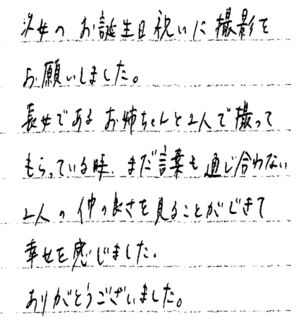 次女の お誕生日祝いに 撮影を
お願いしました。
長女である お姉ちゃんと2人で撮って
もらっている時 まだ言葉も通じ合わない
2人の仲の良さを見ることができて
幸せを感じました。
ありがとうございました。